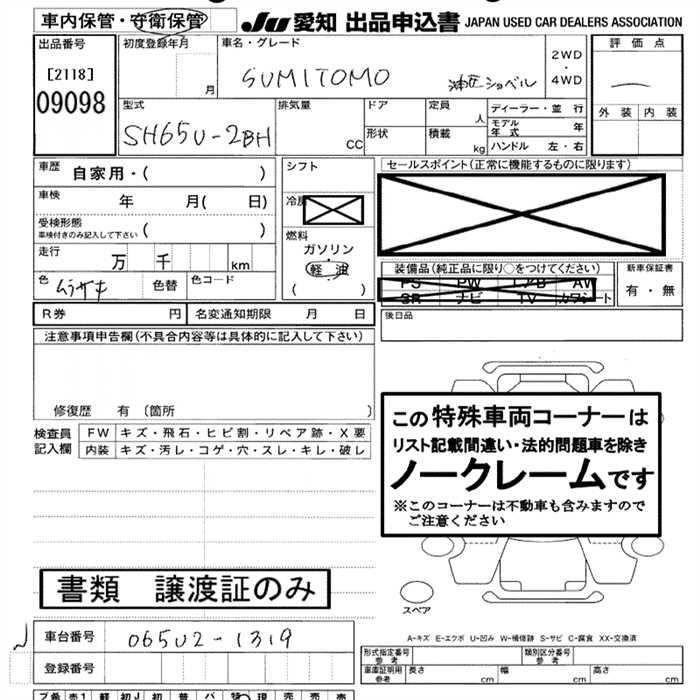 車内保管・守衛保管 JU 愛知 出品申込書 JAPAN USED CAR DEALERS ASSOCIATION
出品番号 初度登録年月 車名・グレード 2WD ・ 4WD 評価点
[2118] 月 SUMITOMO 油圧ショベル
09098
型式 排気量 ドア 定員 人 ディーラー・並 行 外装 内装
SH65U-2BH CC 形状 積載 kg モデル年式 年
ハンドル 左・右
車歴 自家用・( ) シフト セールスポイント(正常に機能するものに限ります)
車検 年 月( 日) 冷房
受検形態 ( ) 燃料
車検付きのみ記入して下さい
走行 万 千 km ガソリン 装備品(純正品に限り○をつけてください) 新車保証書
軽油 PS PW エアB AW 有・無
色 ムラサキ 色替 色コード ( ) SR ナビ TV カワシート
R券 円 名変通知期限 月 日 後日品
注意事項申告欄(不具合内容等は具体的に記入して下さい)
修復歴 有 〔箇所 〕
この特殊車両コーナーは
リスト記載間違い・法的問題車を除き
ノークレームです
※このコーナーは不動車も含みますので
ご注意ください
検査員 FW キズ・飛石・ヒビ割・リペア跡・X要
記入欄 内装 キズ・汚レ・コゲ・穴・スレ・キレ・破レ
書類 譲渡証のみ
スペア
A-キズ E-エクボ U-凹み W-補修跡 S-サビ C-腐食 XX-交換済
車台番号 065U2-1319
形式指定番号 参考 類別区分番号 参考
登録番号 車庫証明用 参考 長さ cm 幅 cm 高さ cm